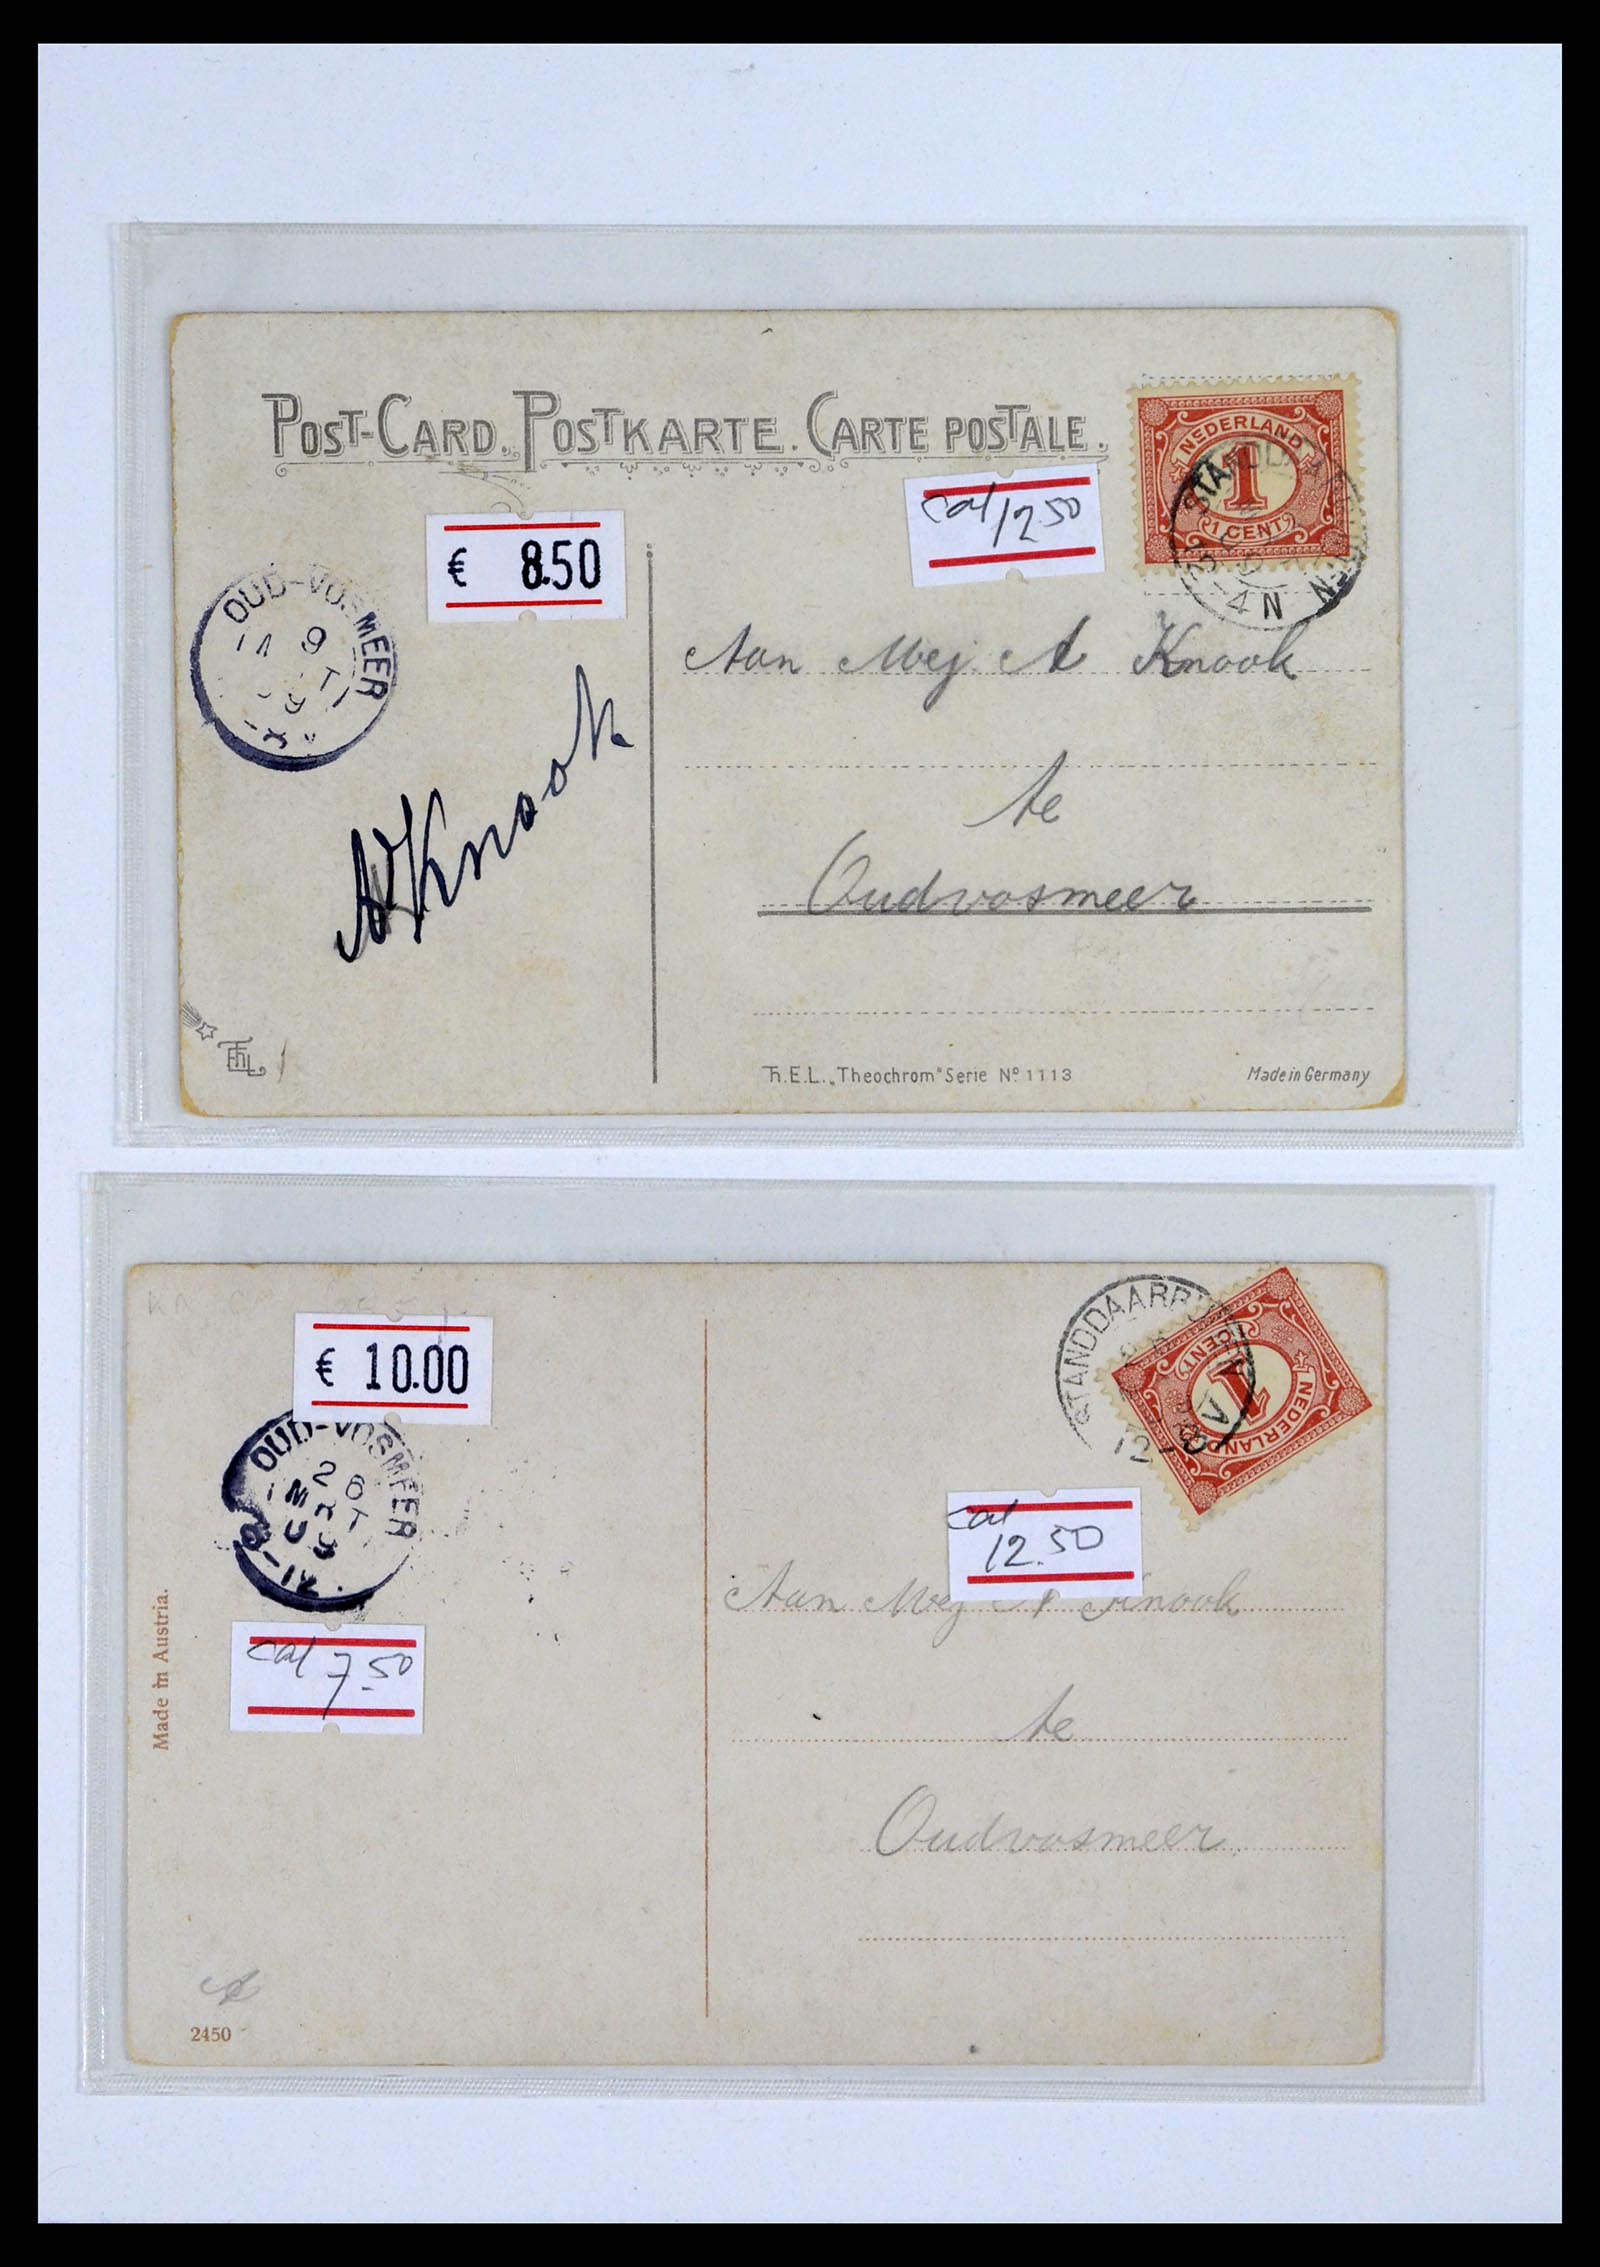 POST-CARD. POSTKARTE. CARTE POSTALE.
NEDERLAND
1
1 CENT
cal 12.50
€ 8.50
OUD-VOSMEER
Aan Mej. A Knook
te
Oudvosmeer
A Knook
Th.E.L. „Theochrom" Serie No. 1113
Made in Germany
ThEL
€ 10.00
STANDDAARB
12-8 V
1 CENT
1
NEDERLAND
OUD-VOSMEER
26
8-12
cal
12.50
Aan Mej A Knook
cal 7.50
te
Made in Austria.
Oudvosmeer
A
2450